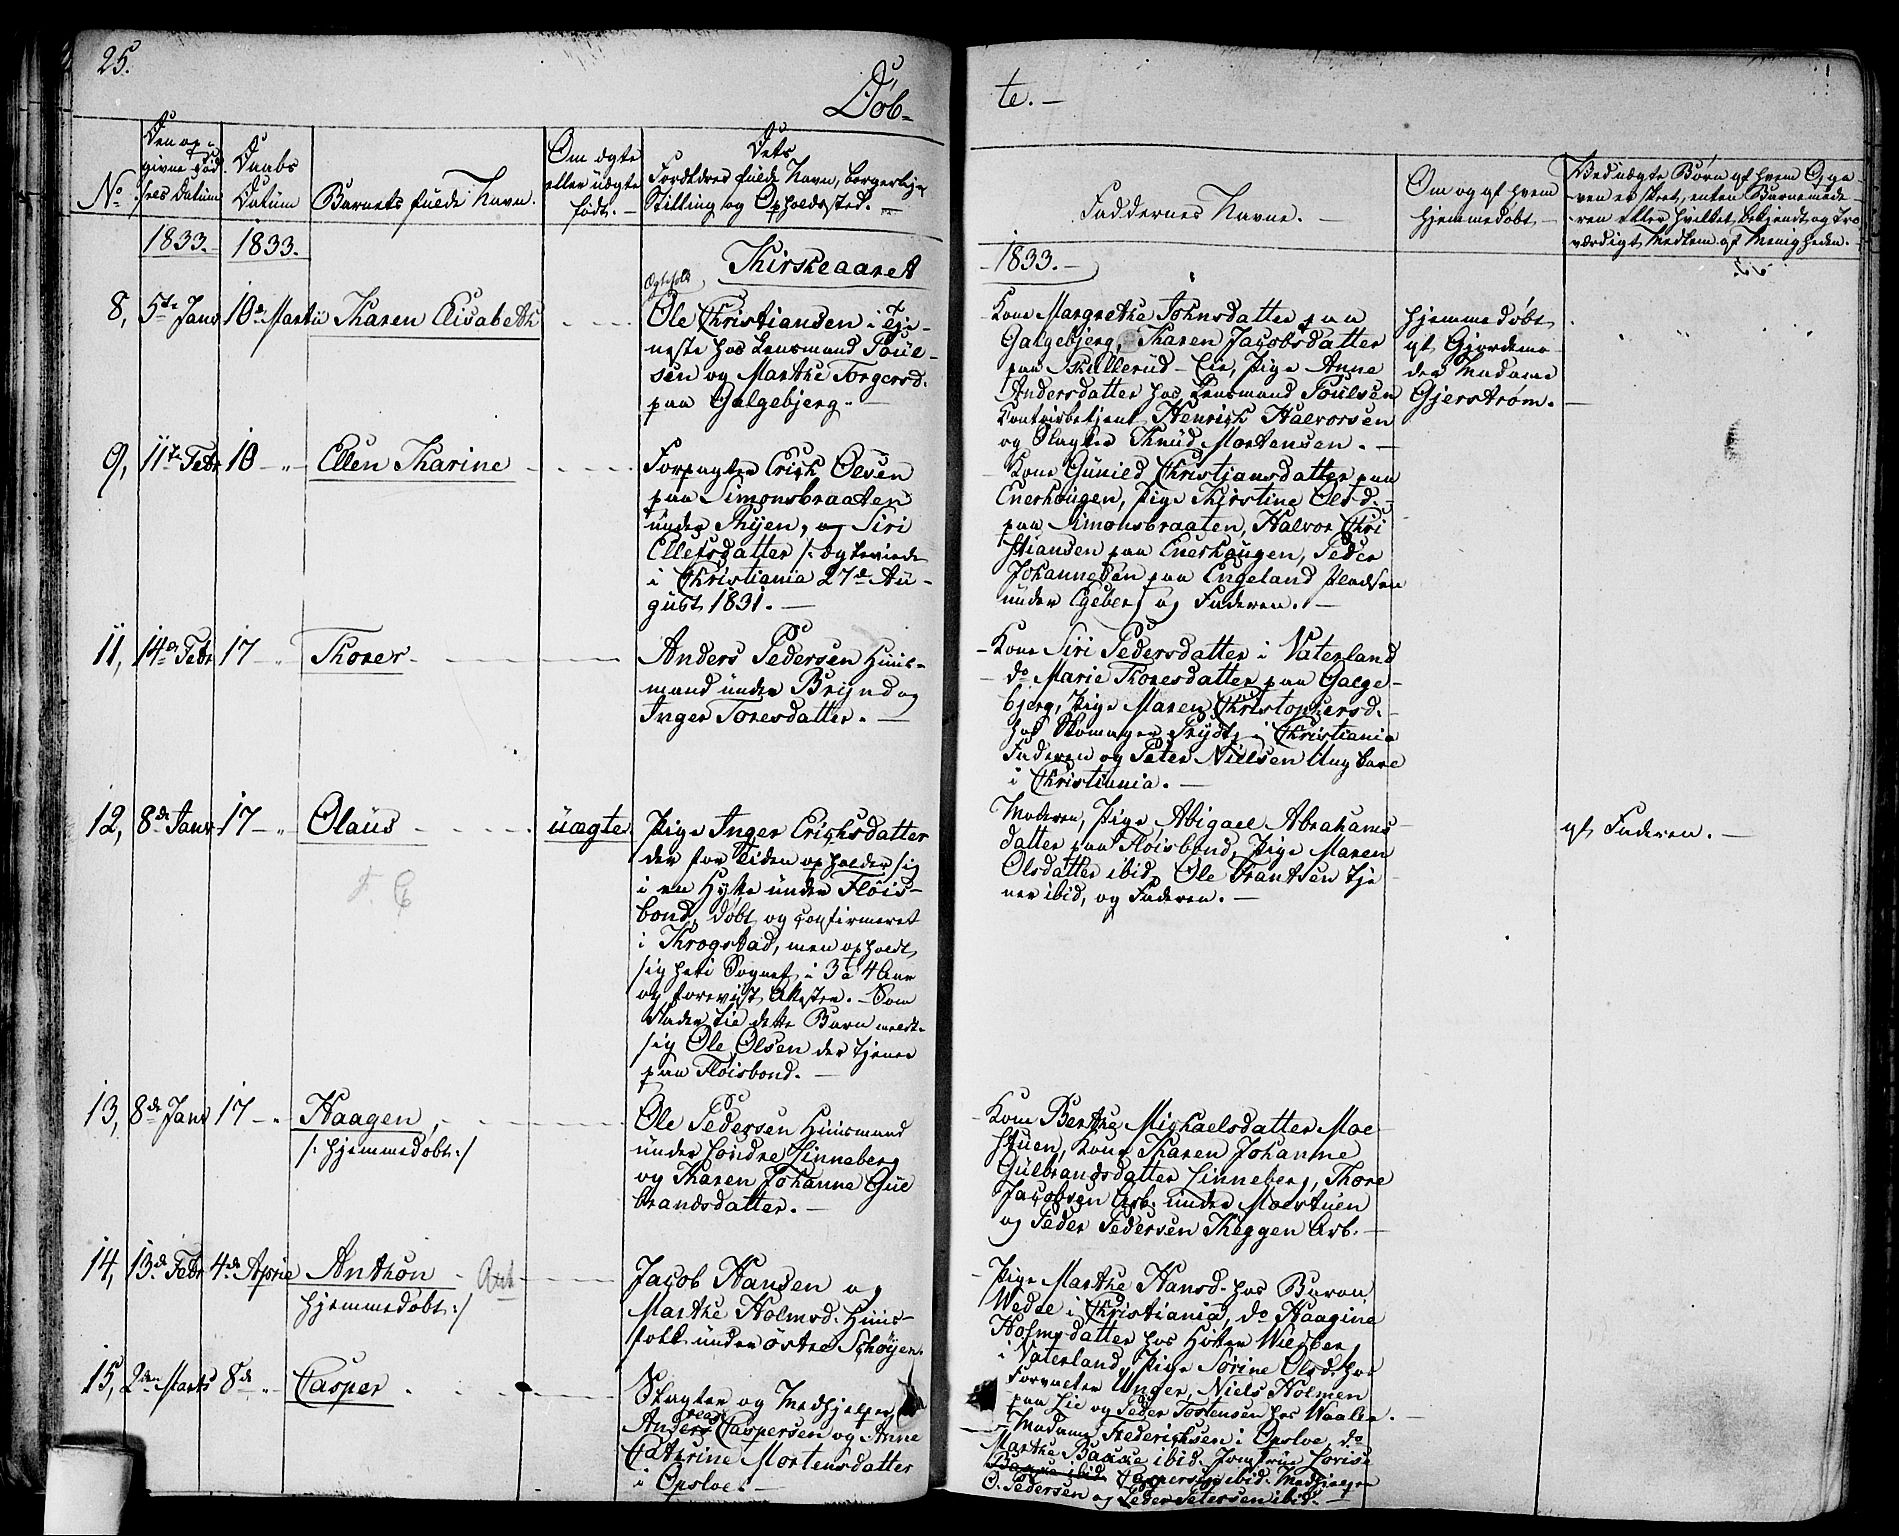 25.
Døb-
te. -
No
Den op-
givne Fød-
sels Datum
Daabs
Datum
Barnets fulde Navn.
Om ægte
eller uægte
født. -
Dets
Forældres fulde Navn, borgerlige
Stilling og Opholdssted. -
Faddernes Navne. -
Om og af hvem
hjemmedøbt -
Ved uægte Børn af hvem Opga-
ven er skeet, enten Barnemode-
ren eller hvilket bekjendt og tro-
værdigt Medlem af Menigheden.
1833.
1833.
Kirkeaaret
1833. -
8, 5te Janr 10de Martii Karen Elisabeth
Ægtefolk
Ole Christiansen i Tje-
neste hos Lensmand Poul-
sen og Marthe Torgersd.
paa Galgebjerg. -
Kone Margrethe Johnsdatter paa
Galgebjerg, Karen Jacobsdatter
paa Skullerud-Eie, Pige Anne
Andersdatter hos Lensmand Poulsen
Contoirbetjent Henrich Halvorsen
og Slagter Knud Mortensen. -
hjemmedøbt
af Gjordemo-
der Madame
Gjerstrøm. -
9, 11te Febr 10 - " - Ellen Karine
Forpagter Erich Olsen
paa Simonsbraaten
under Ryen, og Siri
Ellefsdatter /: ægteviede
i Christiania 27de Au-
gust 1831. -
- Kone Gunild Christiansdatter paa
Enerhougen, Pige Kirstine Olsd.
paa Simonsbraaten, Halvor Chri
stiansen paa Enerhaugen, Peder
Johannesen paa Engeland Pladsen
under Egeberg og Faderen. -
11, 14de Febr 17 - " Thorer
Anders Pedersen Huus-
mand under Bryn og
Inger Toresdatter. -
- Kone Siri Pedersdatter i Vaterland
- do Marie Thoresdatter paa Galge-
bjerg, Pige Maren Christophersd.
hos Skomager Trydtz i Christiania
Faderen og Peter Nielsen Ungkare
i Christiania. -
12, 8de Janr 17 - " - Olaus
F. E
uægte
Pige Inger Erichsdatter
der for Tiden opholder sig
i en Hytte under Fløis-
bond, døbt og confirmeret
i Krogstad, men opholdt
sig her i Sognet i 3 a 4 Aar
og foreviist Attester. - Som
Fader til dette Barn meldt
sig Ole Olsen der tjener
paa Fløisbond. -
Moderen, Pige Abigael Abrahams-
datter paa Fløisbond, Pige Maren
Olsdatter ibid, Ole Frantsen tje
ner ibid, og Faderen. -
af Faderen. -
13, 8de Janr 17 - " Haagen,
/: hjemmedøbt :/
Ole Pedersen Huusmand
under søndre Linneberg
og Karen Johanne Gul
brandsdatter. -
- Kone Berthe Michaelsdatter Moe
stuen, Kone Karen Johanne
Gulbrandsdatter Linneberg, Thore
Jacobsen Arb. under Moestuen
og Peder Pedersen Keggen Arb. -
14, 13de Febr 4de April Anthon -
hjemmedøbt :/
Jacob Hansen og
Marthe Holmsd. Huus-
folk under østre Schøyen.
- Pige Marthe Hansd. hos Baron
Wedel i Christiania, do Haagine
Holmsdatter hos Høker Wiegber
i Vaterland, Pige Sørine Olsd. hos
Forvalter Unger, Niels Holmen
paa Lie og Peder Tostensen hos Waaler. -
15, 2den Marts 8de - " Casper
Slagter og Medhjelper
Andreas Caspersen og Anne
Cathrine Mortensdatter
i Opsloe. -
- Madame Frederichsen i Opsloe, do
Marthe Bakke ibid. Jomfrue Lovise
Bakke ibid. Caspersen ibid. Medhjelper
O. Pedersen og Peder Petersen ibid. -